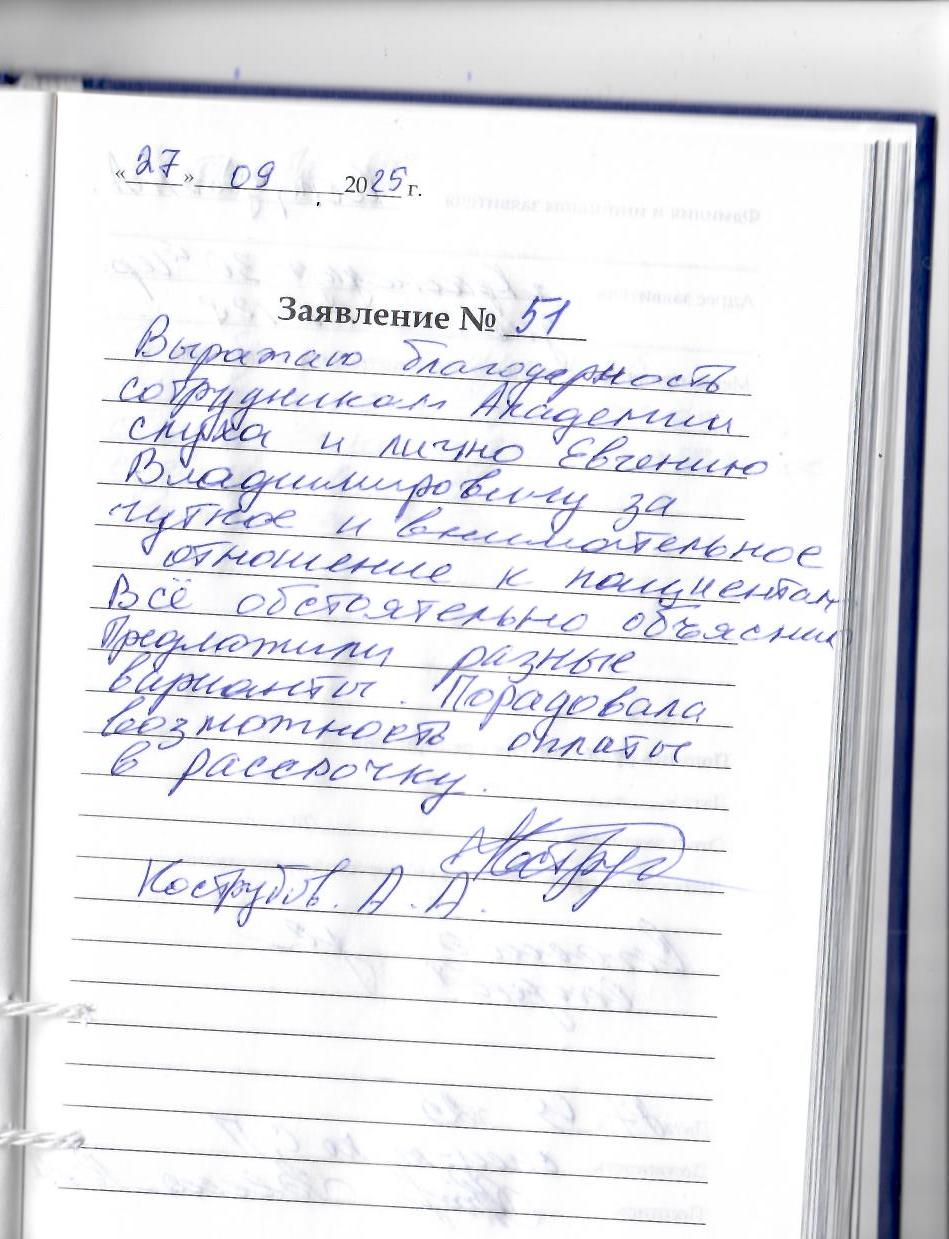 «27» 09 2025 г.
Заявление № 51
Выражаю благодарность
сотрудникам Академии
слуха и лично Евгению
Владимировичу за
чуткое и внимательное
отношение к пациентам
Всё обстоятельно объяснил
Предложили разные
варианты. Порадовала
возможность оплаты
в рассрочку.
Кострубов. А. А.